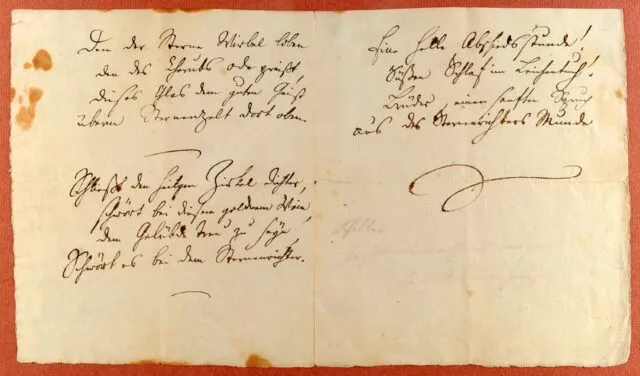 Den der Sterne Wirbel loben,
den des Cherubs ode preißt,
dieses Glas dem guten Geist
überm Sternenzelt dort oben.
Schließt den heilgen Zirkel dichter,
schwört bei diesem goldnem Wein
dem Gelübde treu zu seyn,
Schwört es bei dem Sternenrichter.
Eine Abschiedsstunde!
Süßen Schlaf im Leichentuch!
Brüder, einen sanften Spruch
aus des Sternenrichters Munde